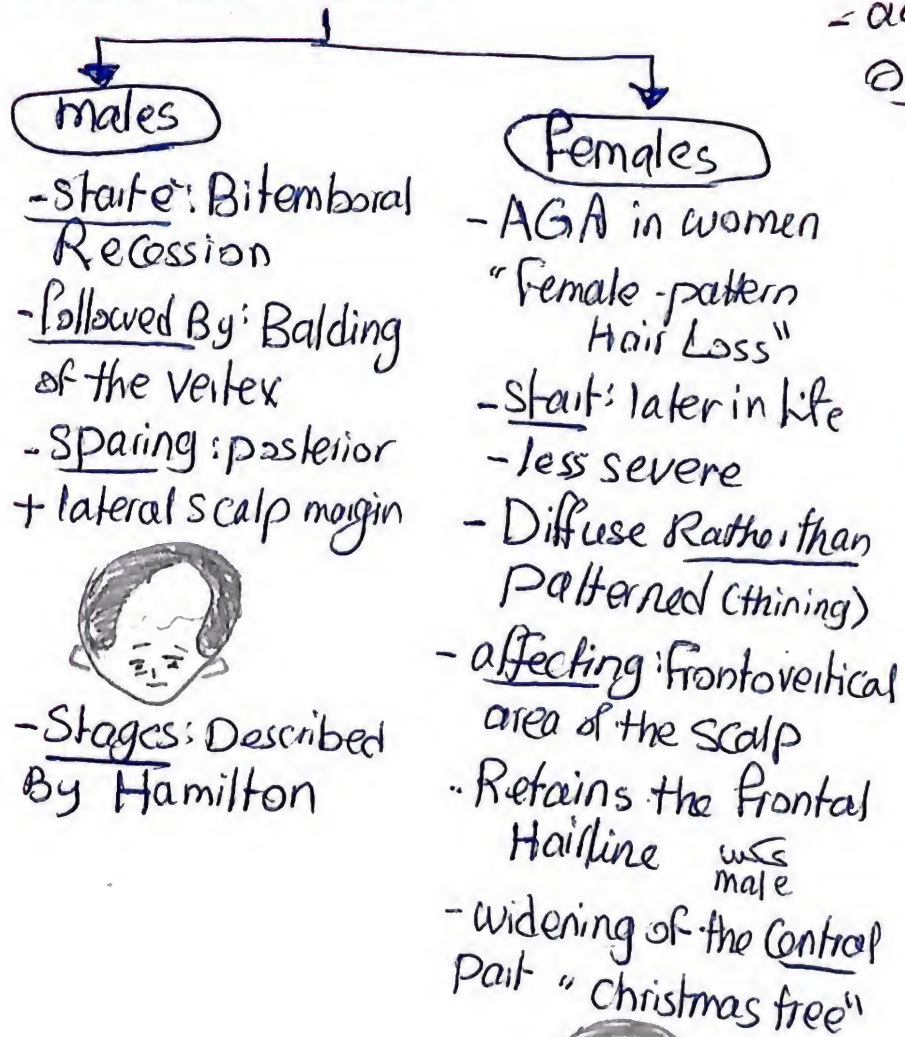 males
- Starte: Bitemboral
Recession
- followed By: Balding
of the vertex
- Sparing: posterior
+ lateral scalp margin
- Stages: Described
By Hamilton
Females
- AGA in women
"Female-pattern
Hair Loss"
- Start: later in life
- less severe
- Diffuse Rather than
patterned (thining)
- affecting: frontovertical
area of the scalp
- Retains the frontal
Hairline عكس
male
- widening of the Central
Part "Christmas tree"